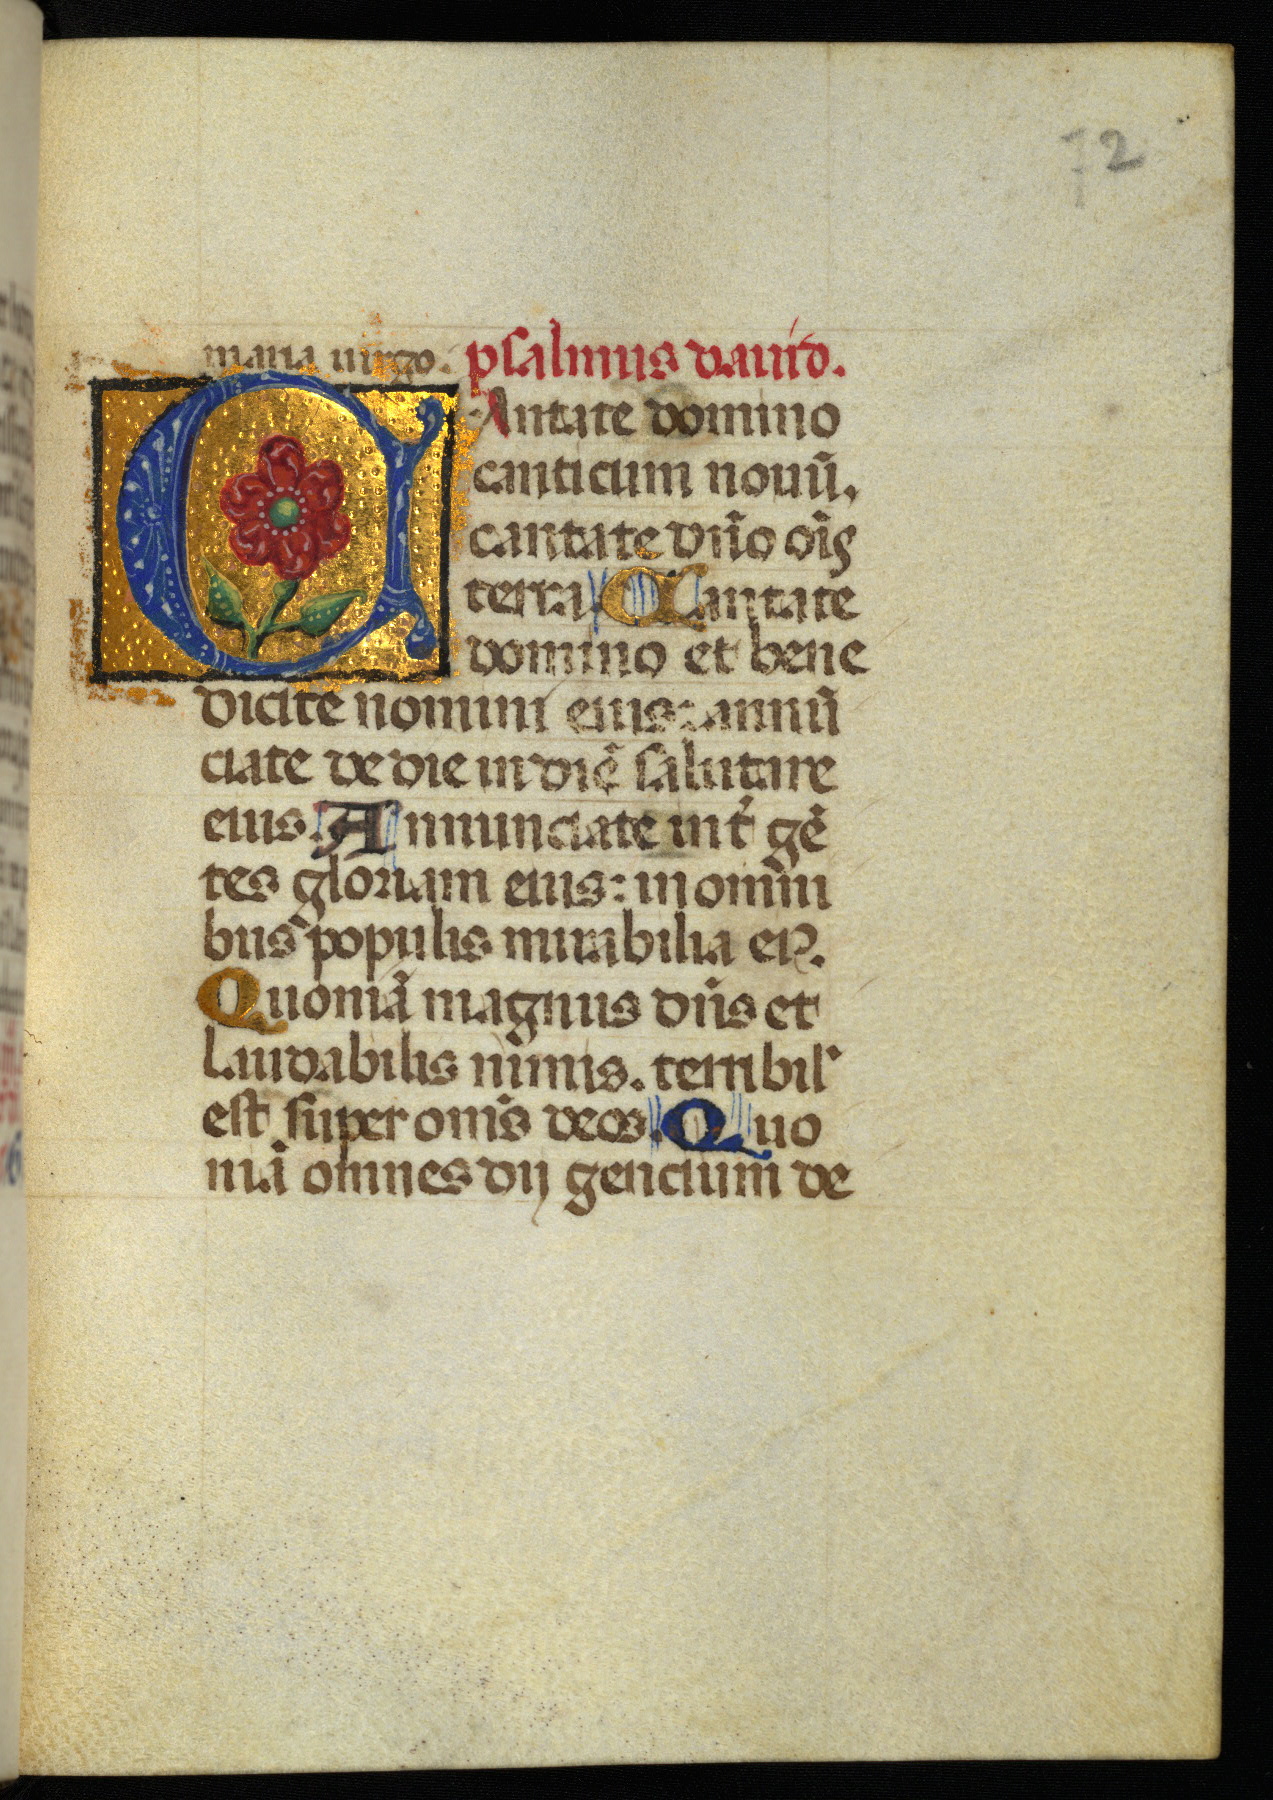 72
maria uirgo. psalmus dauid.
CAntate domino
canticum nouū.
cantate dn̄o oīs
terra. Cantate
domino et bene
dicite nomini eius: annū
ciate de die in diē salutare
eius. Annunciate int̄ gē
tes gloriam eius: in omni
bus populis mirabilia eiꝰ.
Quoniā magnus dn̄s et
laudabilis nimis. terribil'
est super om̄s deos. Quo
niā omnes dij gencium de